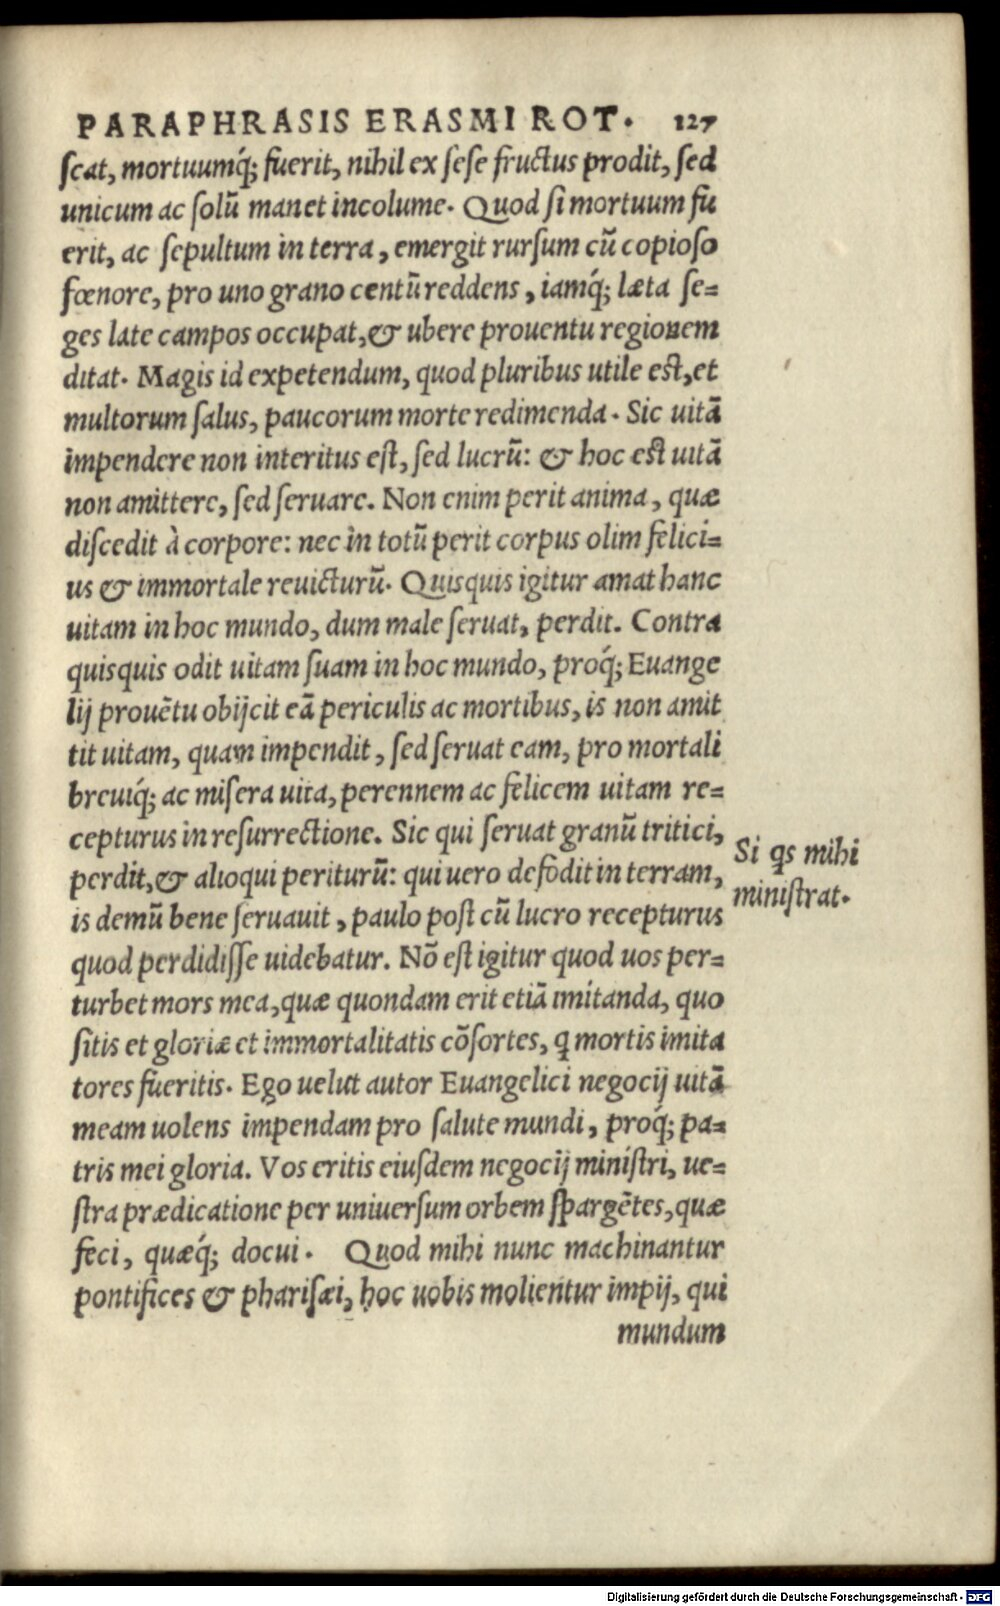 PARAPHRASIS ERASMI ROT. 127
ſcat, mortuumq́; fuerit, nihil ex ſeſe fructus prodit, ſed
unicum ac ſolũ manet incolume. Quod ſi mortuum fu
erit, ac ſepultum in terra, emergit rurſum cũ copioſo
fœnore, pro uno grano centũ reddens, iamq́; læta ſe=
ges late campos occupat, & ubere prouentu regionem
ditat. Magis id expetendum, quod pluribus utile eſt, et
multorum ſalus, paucorum morte redimenda. Sic uitã
impendere non interitus eſt, ſed lucrũ: & hoc eſt uitã
non amittere, ſed ſeruare. Non enim perit anima, quæ
diſcedit à corpore: nec in totũ perit corpus olim felici=
us & immortale reuicturũ. Quisquis igitur amat hanc
uitam in hoc mundo, dum male ſeruat, perdit. Contra
quisquis odit uitam ſuam in hoc mundo, proq́; Euange
lij prouẽtu obijcit eã periculis ac mortibus, is non amit
tit uitam, quam impendit, ſed ſeruat eam, pro mortali
breuiq́; ac miſera uita, perennem ac felicem uitam re=
cepturus in reſurrectione. Sic qui ſeruat granũ tritici,
perdit, & alioqui periturũ: qui uero defodit in terram,
is demũ bene ſeruauit, paulo poſt cũ lucro recepturus
quod perdidiſſe uidebatur. Nõ eſt igitur quod uos per=
turbet mors mea, quæ quondam erit etiã imitanda, quo
ſitis et gloriæ et immortalitatis cõſortes, q mortis imita
tores fueritis. Ego uelut autor Euangelici negocij uitã
meam uolens impendam pro ſalute mundi, proq́; pa=
tris mei gloria. Vos eritis eiuſdem negocij miniſtri, ue=
ſtra prædicatione per uniuerſum orbem ſpargẽtes, quæ
feci, quæq́; docui. Quod mihi nunc machinantur
pontifices & phariſæi, hoc uobis molientur impij, qui
mundum
Si qs mihi
miniſtrat.
Digitalisierung gefördert durch die Deutsche Forschungsgemeinschaft - DFG